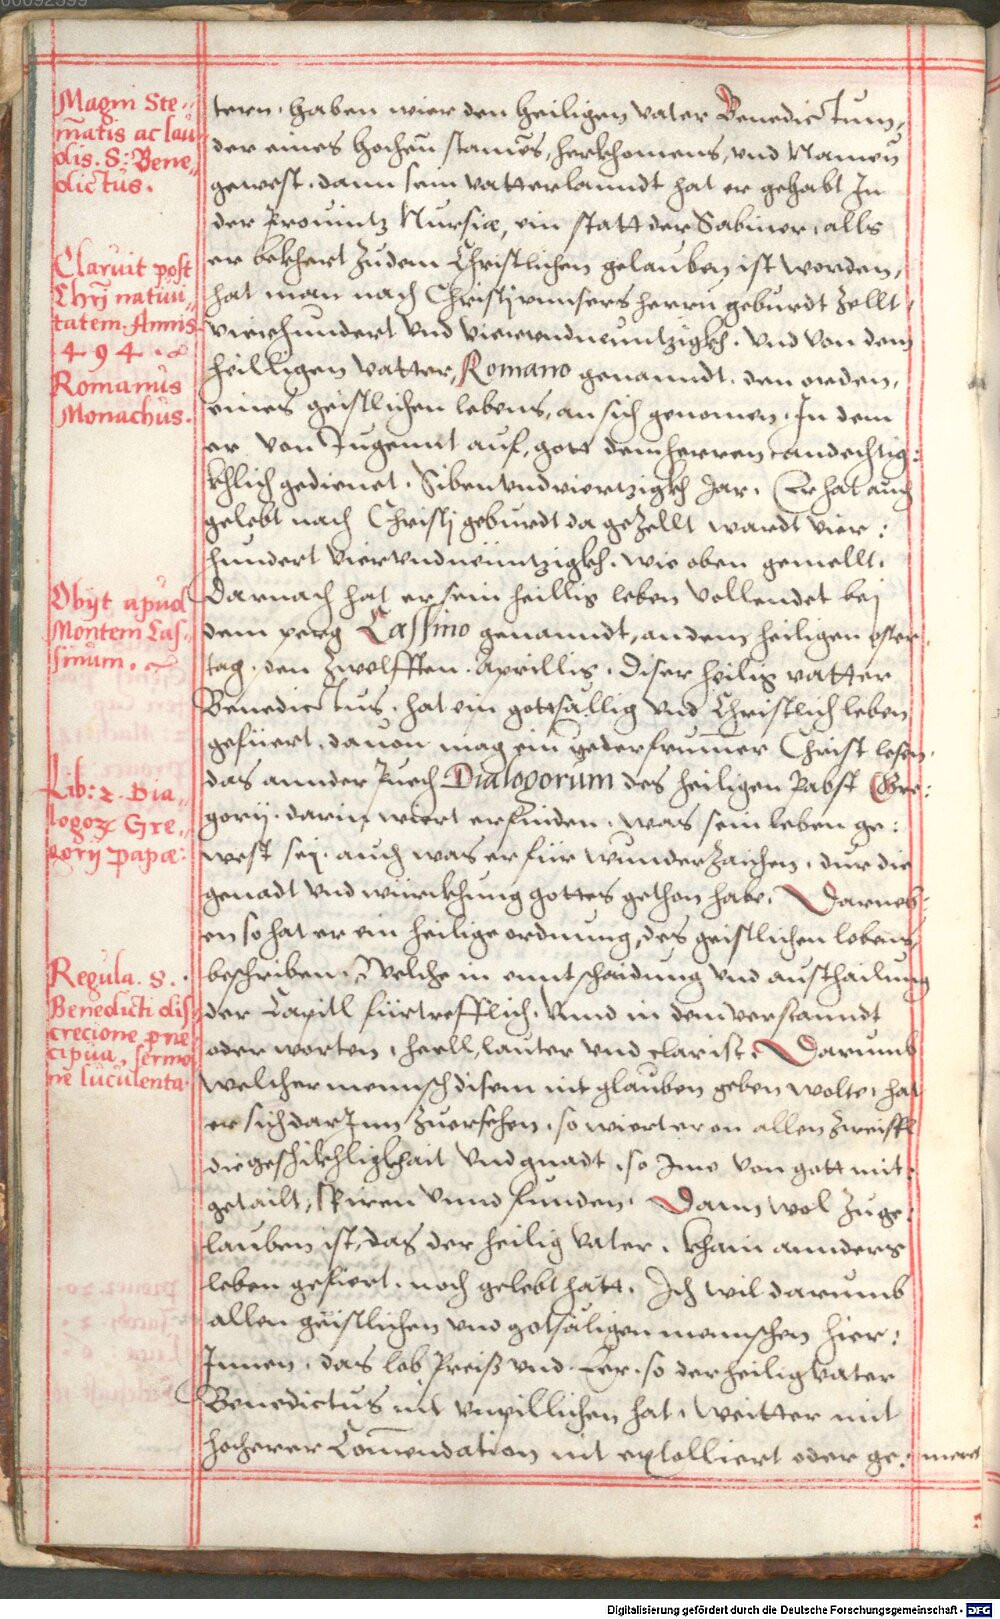 00092599
Magni Ste-
m̃atis ac lau
dis. S: Bene,
dictus.
Claruit post
Chrj̃ natiui
tatem. Annis
494.
Romanus
Monachus.
Obijt apud
Montem Cas-
sinum.
Lib: 2. Dia-
logoꝝ Gre-
gorij papæ:
Regula. S.
Benedicti dis
crecione præ
cipua, sermo
ne luculenta.
tern. haben wier den heiligen vater Benedictum,
der eines hochen̄ stames, herkhomens, vnd Namen
gewest. dann sein vatterlanndt hat er gehabt In
der Prouintz Nursiæ, ein statt der Sabiner, allß
er bekhert zu dem Christlichen gelauben ist worden,
hat man nach Christj vnnsers herrn geburdt zellt
vierhundert vnd vierundneuntzigkh. vnd von dem
heilligen vatter, Romano genanndt. den orden,
eines geistlichen lebens, an sich genomen. In dem
er von Jugennt auf, gott dem herren andechtig:
khlich gedienet. Siben vnd viertzigkh Jar. Er hat auch
gelebt nach Christj geburdt da gezellt wardt vier:
hundert vierundneuntzigkh. wie oben gemellt.
Darnach hat er sein heillig leben vollendet bei
dem perg Cassino genanndt, an dem heiligen oster
tag. den zwelfften Aprillis. Diser heilig vatter
Benedictus. hat ein gottsällig vnd Christlich leben
gefüert. dauon mag ein yeder frum̄er Christ lesen.
das annder Puech Dialogorum des heiligen Pabst Gre:
gorij. darin wiert erfinden. was sein leben ge:
west sej. auch was er für wunderzaichen. dur die
genadt vnd würckhung gottes gethon habe. Darneb:
en so hat er ein heilige ordnung, des geistlichen lebens
beschriben. Welche in enntschaidung vnd austhailung
der Capitl fürtrefflich. vnnd in dem verstanndt
oder worten, hell, lauter vnd clar ist. Darumb
welcher mennsch disem nit glauben geben wolte. hat
er sich darJnn zuersehen. so wiert er on allen zweiffl
die geschikhligkhait vnd gnadt, so Ime von gott mit:
getailt, spiren vnnd funden. Dann wol zuge:
lauben ist, das der heilig vater. khain annders
leben gefiert. noch gelebt hatt. Ich wil darumb
allen geistlichen vnd gotsäligen mennschen hier:
Innen. das lob, Preiß vnd Eer. so der heilig vater
Benedictus nit vnpillichen hat. weitter mit
hocherer Com̄endation nit extolliert oder ge:
Digitalisierung gefördert durch die Deutsche Forschungsgemeinschaft - DFG